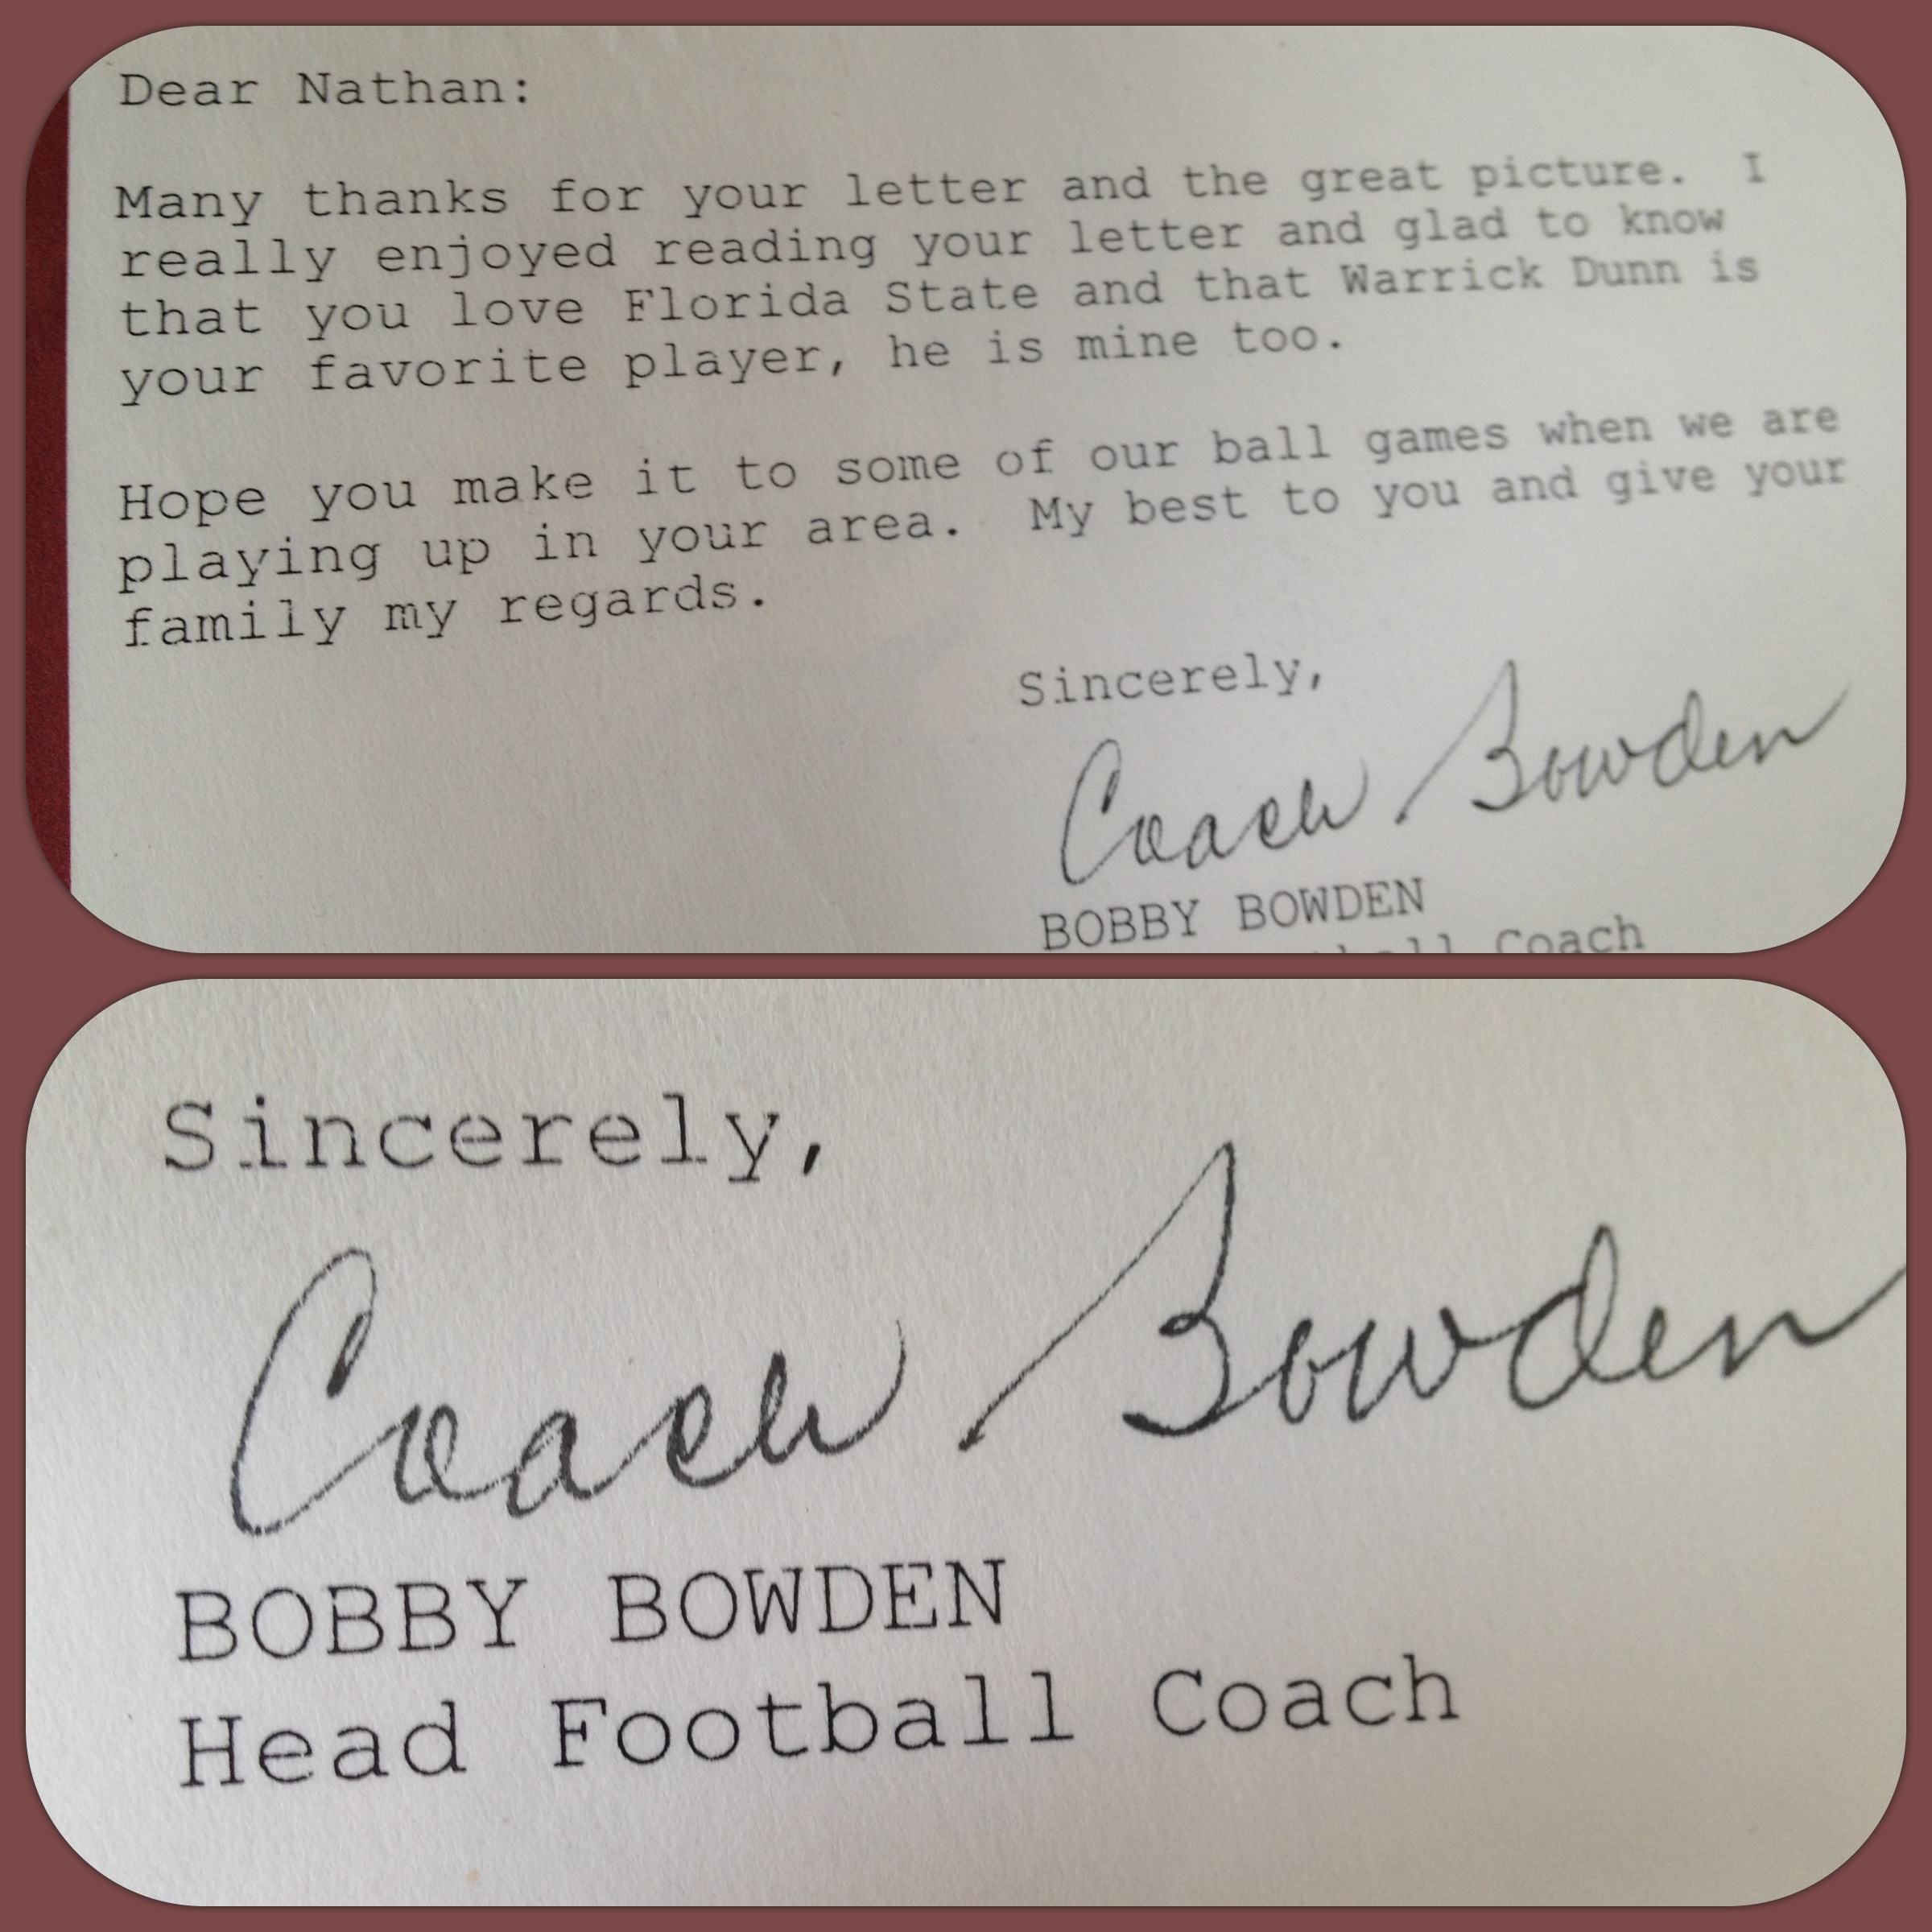 Dear Nathan:
Many thanks for your letter and the great picture. I
really enjoyed reading your letter and glad to know
that you love Florida State and that Warrick Dunn is
your favorite player, he is mine too.
Hope you make it to some of our ball games when we are
playing up in your area. My best to you and give your
family my regards.
Sincerely,
Coach Bowden
BOBBY BOWDEN
Coach
Sincerely,
Coach Bowden
BOBBY BOWDEN
Head Football Coach